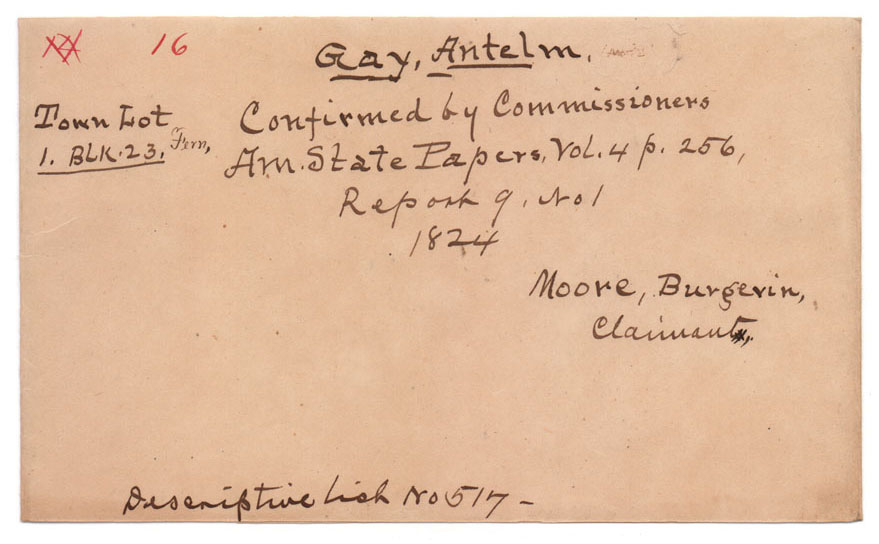 16
Gay, Antelm.
Town Lot
1. BLK. 23. Fern,
Confirmed by Commissioners
Am. State Papers, Vol. 4 p. 256,
Report 9, No 1
1824
Moore, Burgevin,
Claimants,
Descriptive List No 517 -